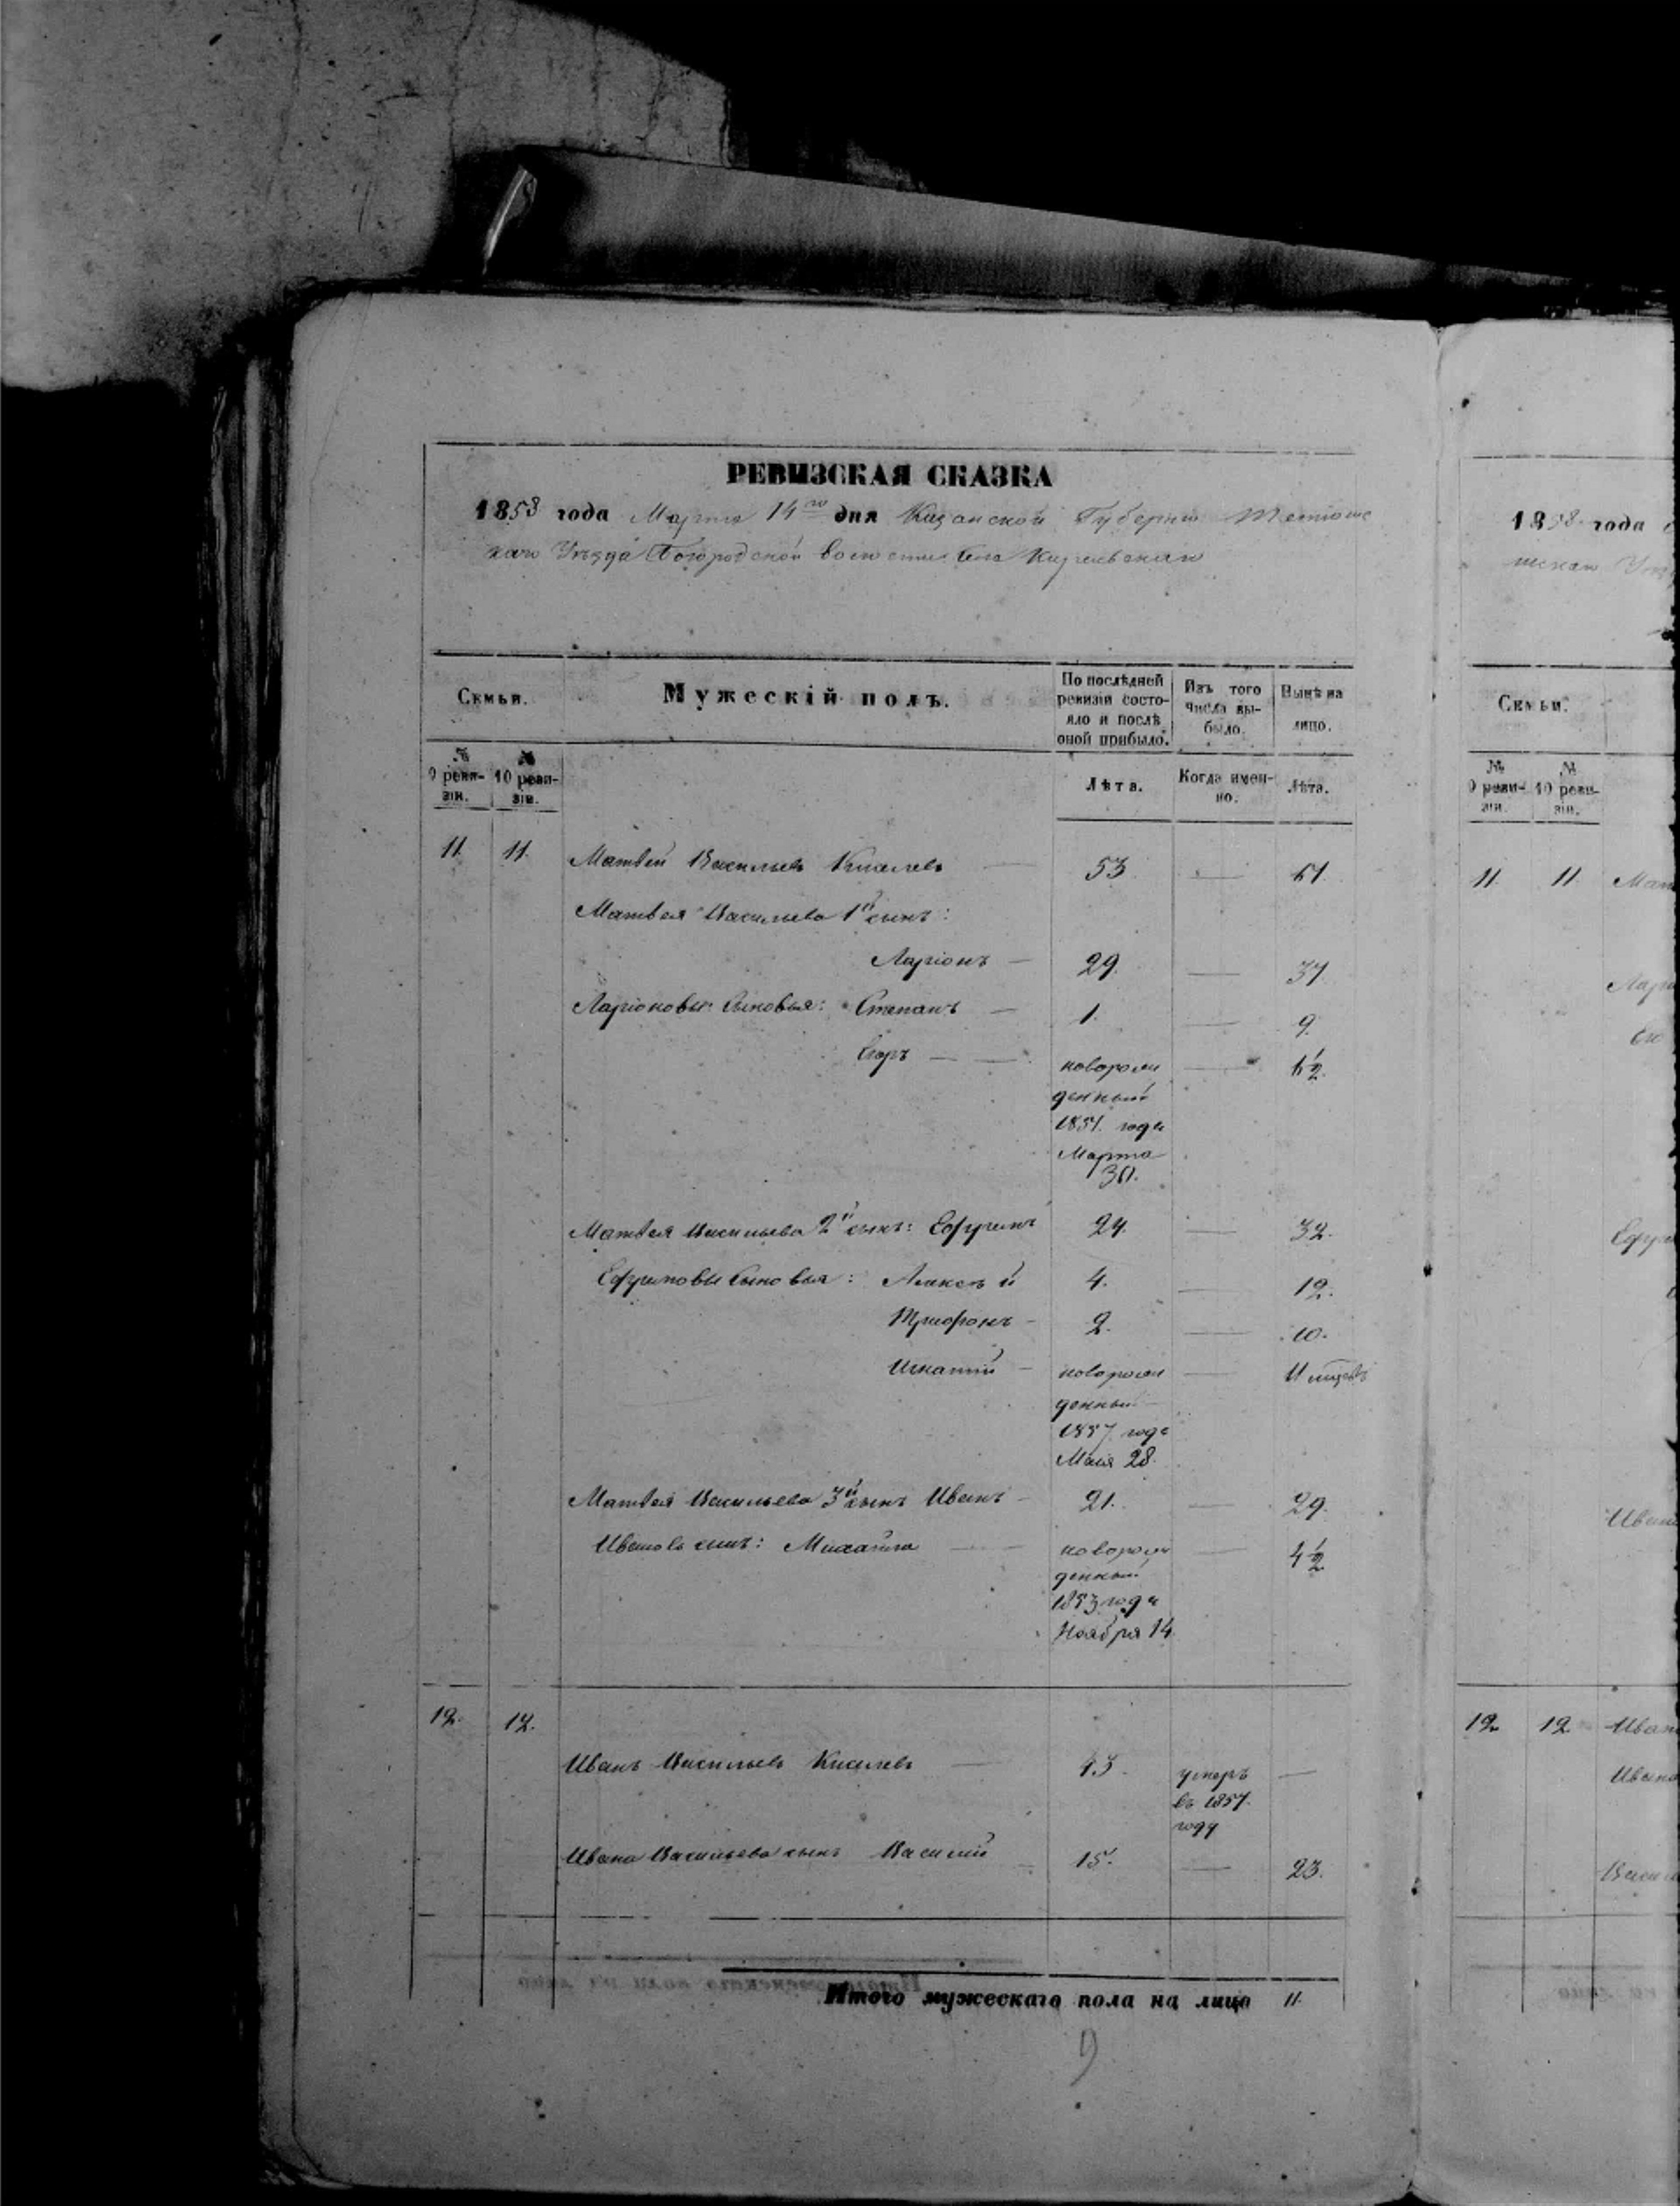 РЕВИЗСКАЯ СКАЗКА
1858 года Марта 14го дня Казанской Губернiи Тетюшс
каго Уѣзда Богородской волости Села
Семьи. Мужескiй полъ. По послѣдней ревизiи состояло и послѣ оной прибыло. Изъ того числа выбыло. Нынѣ на лицо.
№ 9 ревизiи. № 10 ревизiи. Лѣта. Когда именно. Лѣта.
11 11. Матвей Васильевъ Киселевъ — 53 — 61
Матвея Васильева 1й сынъ:
Ларiонъ — 29. — 37
Ларiоновы сыновья: Степанъ — 1. — 9.
Егоръ — — новорож — 6½
денный
1851. года
Марта
30.
Матвея Васильева 2й сынъ: Ефремъ 24. — 32.
Ефремовы сыновья: Алексѣй 4. — 12.
Трифонъ — 2. — 10.
Игнатiй — новорож —
денный
1857 года
Маiя 28.
Матвея Васильева 3й сынъ Иванъ — 21. — 29.
Ивановъ сынъ: Михайла — новорож — 4½
денный
1853 года
Ноября 14.
12. 12.
Иванъ Васильевъ Киселевъ — 43. умеръ —
въ 1857.
году
Ивана Васильева сынъ Василiй — 15. — 23.
Итого мужескаго пола на лицо 11.
9
1858 года
Семьи.
№ 9 ревизiи. № 10 ревизiи.
11. 11.
12 12